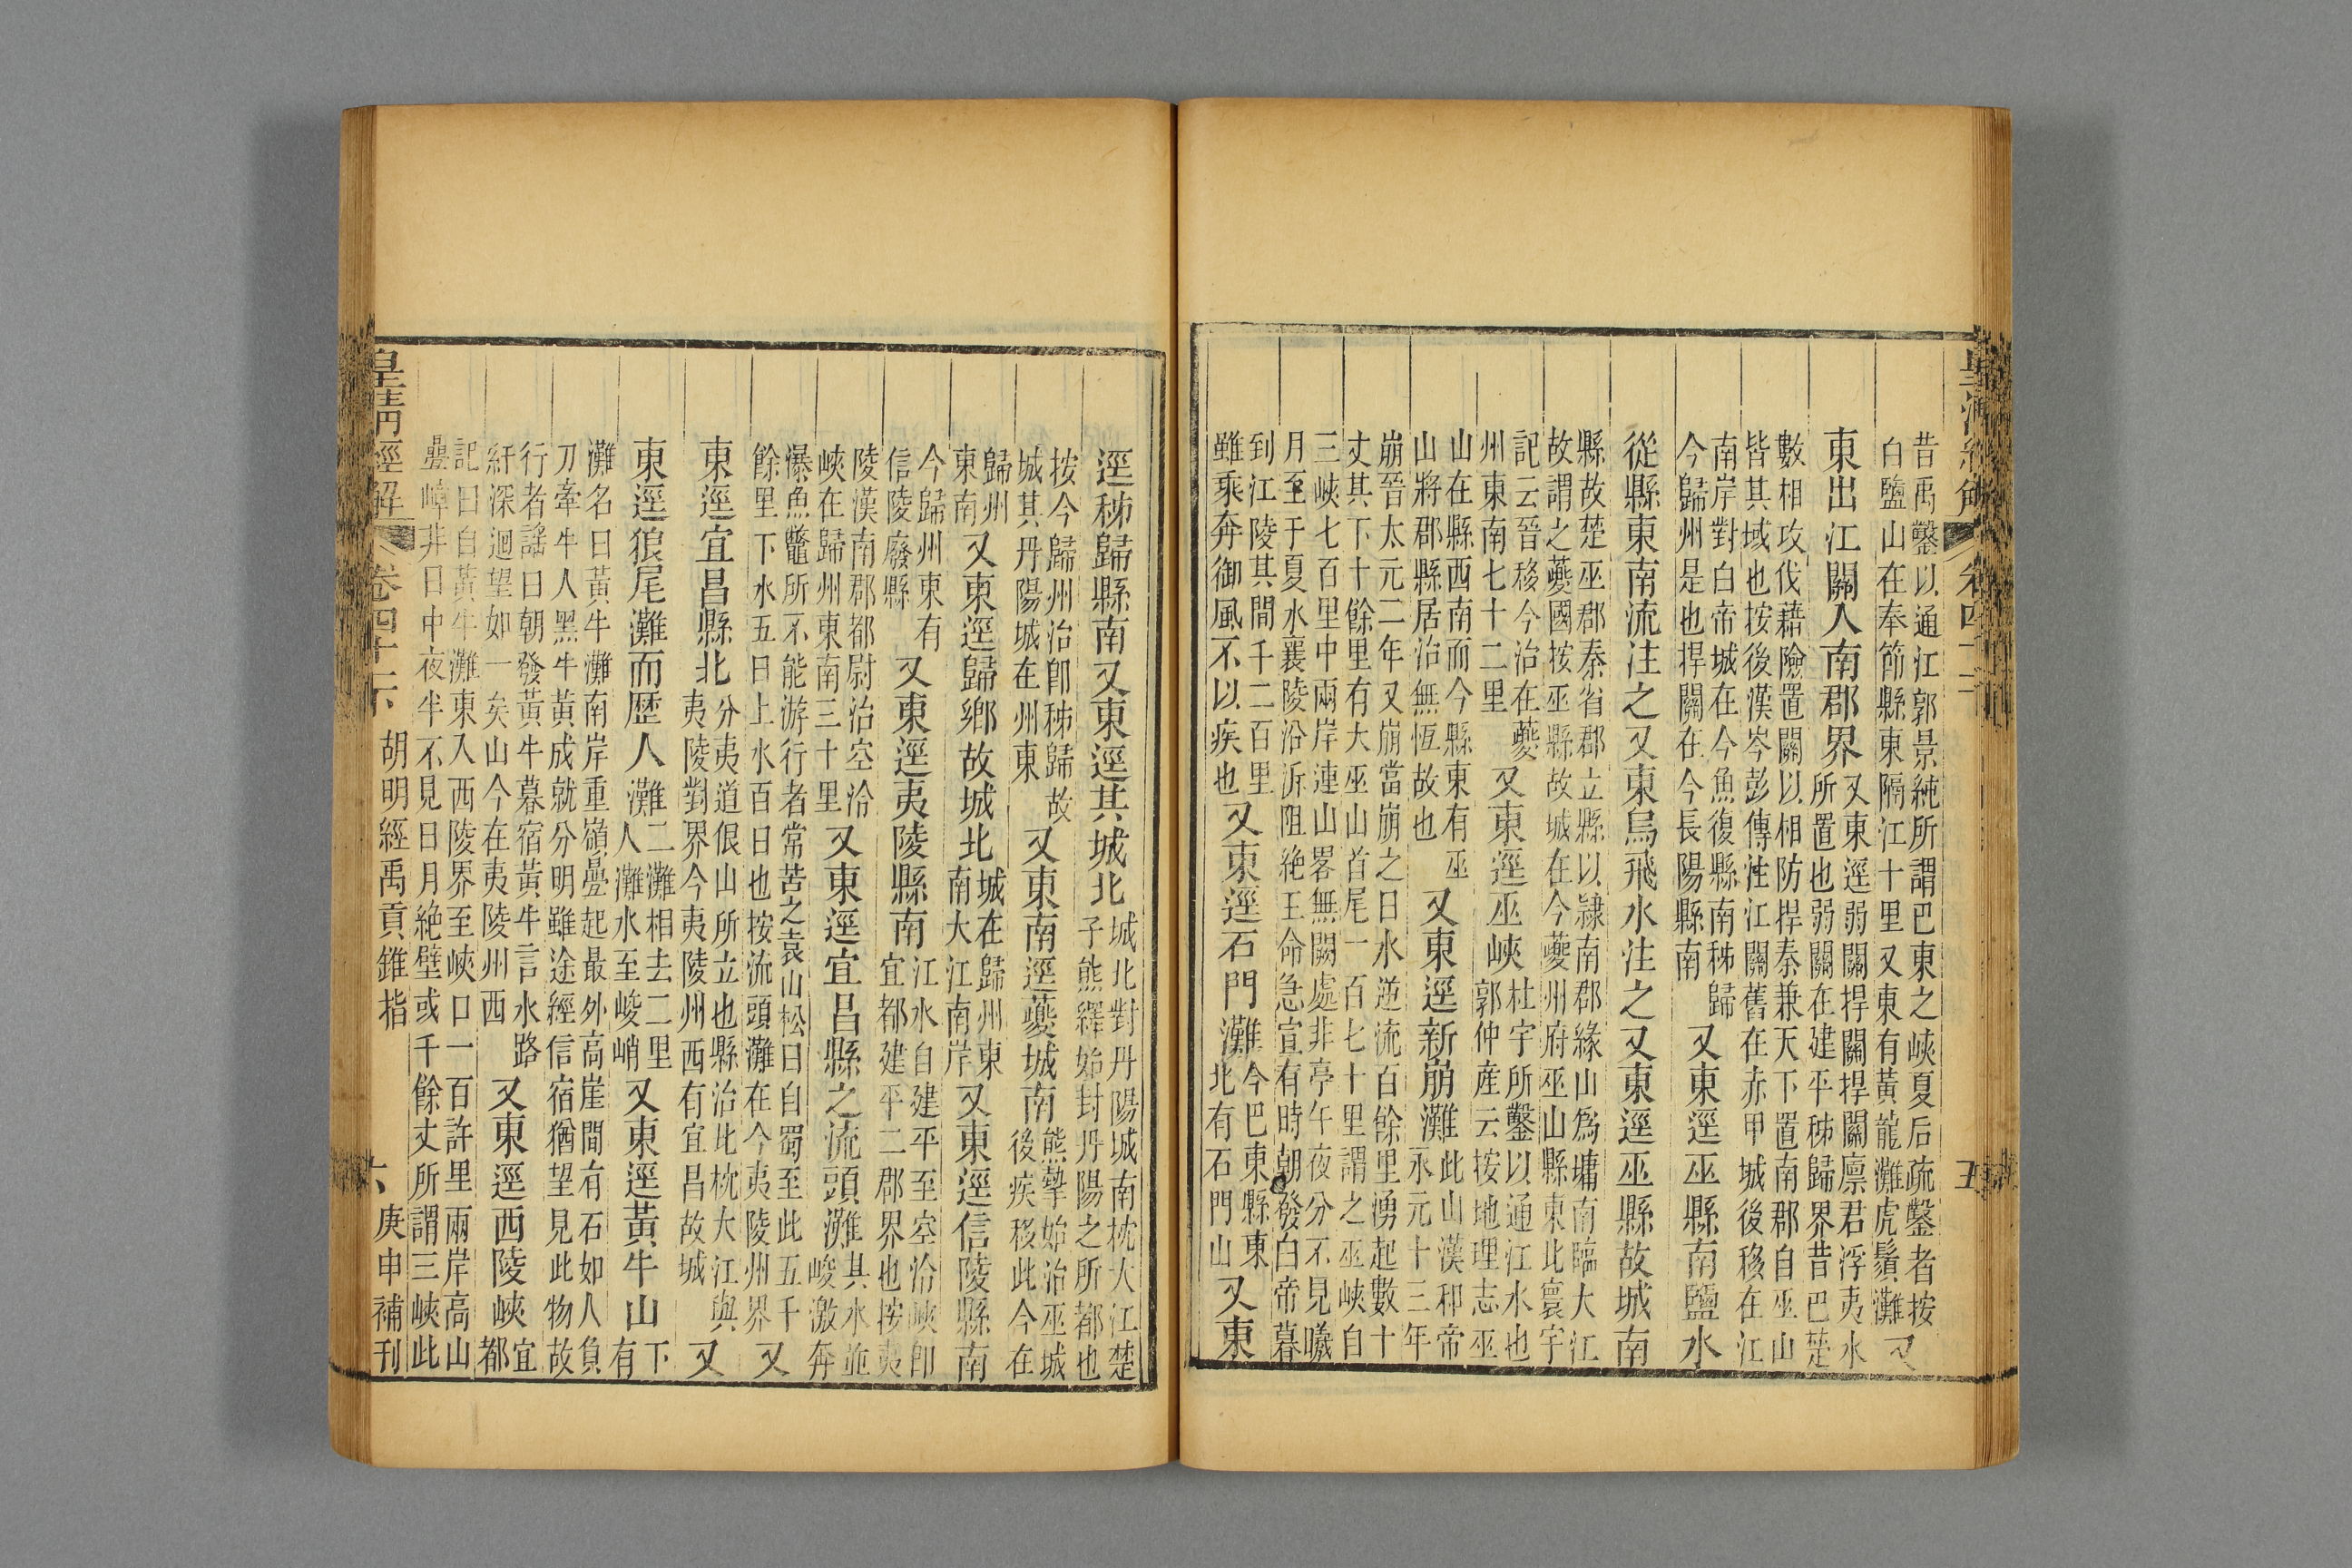 皇清經解　卷四十二　五
昔禹鑿以通江郭景純所謂巴東之峽夏后疏鑿者按
白鹽山在奉節縣東隔江十里又東有黃龍灘虎鬚灘　又
東出江關入南郡界
又東逕弱關捍關捍關廩君浮夷水
所置也弱關在建平秭歸界昔巴楚
數相攻伐藉險置關以相防捍秦兼天下置南郡自巫山
皆其域也按後漢岑彭傳注江關舊在赤甲城後移在江
南岸對白帝城在今魚復縣南秭歸
今歸州是也捍關在今長陽縣南
又東逕巫縣南鹽水
從縣東南流注之又東烏飛水注之又東逕巫縣故城南
縣故楚巫郡秦省郡立縣以隷南郡緣山爲墉南臨大江
故謂之夔國按巫縣故城在今夔州府巫山縣東北寰宇
記云晉移今治在夔
州東南七十二里
又東逕巫峽
杜宇所鑿以通江水也
郭仲産云按地理志巫
山在縣西南而今縣東有巫
山將郡縣居治無恆故也
又東逕新崩灘
此山漢和帝
永元十三年
崩晉太元二年又崩當崩之日水逆流百餘里湧起數十
丈其下十餘里有大巫山首尾一百七十里謂之巫峽自
三峽七百里中兩岸連山畧無闕處非亭午夜分不見曦
月至于夏水襄陵沿泝阻絶王命急宣有時朝發白帝暮
到江陵其間千二百里
雖乘奔御風不以疾也
又東逕石門灘
今巴東縣東
北有石門山
又東
逕秭歸縣南又東逕其城北
城北對丹陽城南枕大江楚
子熊繹始封丹陽之所都也
按今歸州治卽秭歸故
城其丹陽城在州東
又東南逕夔城南
熊摯始治巫城
後疾移此今在
歸州
東南
又東逕歸鄉故城北
城在歸州東
南大江南岸
又東逕信陵縣南
今歸州東有
信陵廢縣
又東逕夷陵縣南
江水自建平至空泠峽卽
宜都建平二郡界也按夷
陵漢南郡都尉治空泠
峽在歸州東南三十里
又東逕宜昌縣之流頭灘
其水並
峻激奔
瀑魚鼈所不能游行者常苦之袁山松曰自蜀至此五千
餘里下水五日上水百日也按流頭灘在今夷陵州界　又
東逕宜昌縣北
分夷道佷山所立也縣治此枕大江與
夷陵對界今夷陵州西有宜昌故城
又
東逕狼尾灘而歷人灘
二灘相去二里
人灘水至峻峭
又東逕黃牛山
下
有
灘名曰黃牛灘南岸重嶺疊起最外高崖間有石如人負
刀牽牛人黑牛黃成就分明雖途經信宿猶望見此物故
行者謠曰朝發黃牛暮宿黃牛言水路
紆深迴望如一矣山今在夷陵州西
又東逕西陵峽
宜
都
記曰自黃牛灘東入西陵界至峽口一百許里兩岸高山
疊嶂非日中夜半不見日月絶壁或千餘丈所謂三峽此
皇清經解　卷四十二　胡明經禹貢錐指　六　庚申補刊